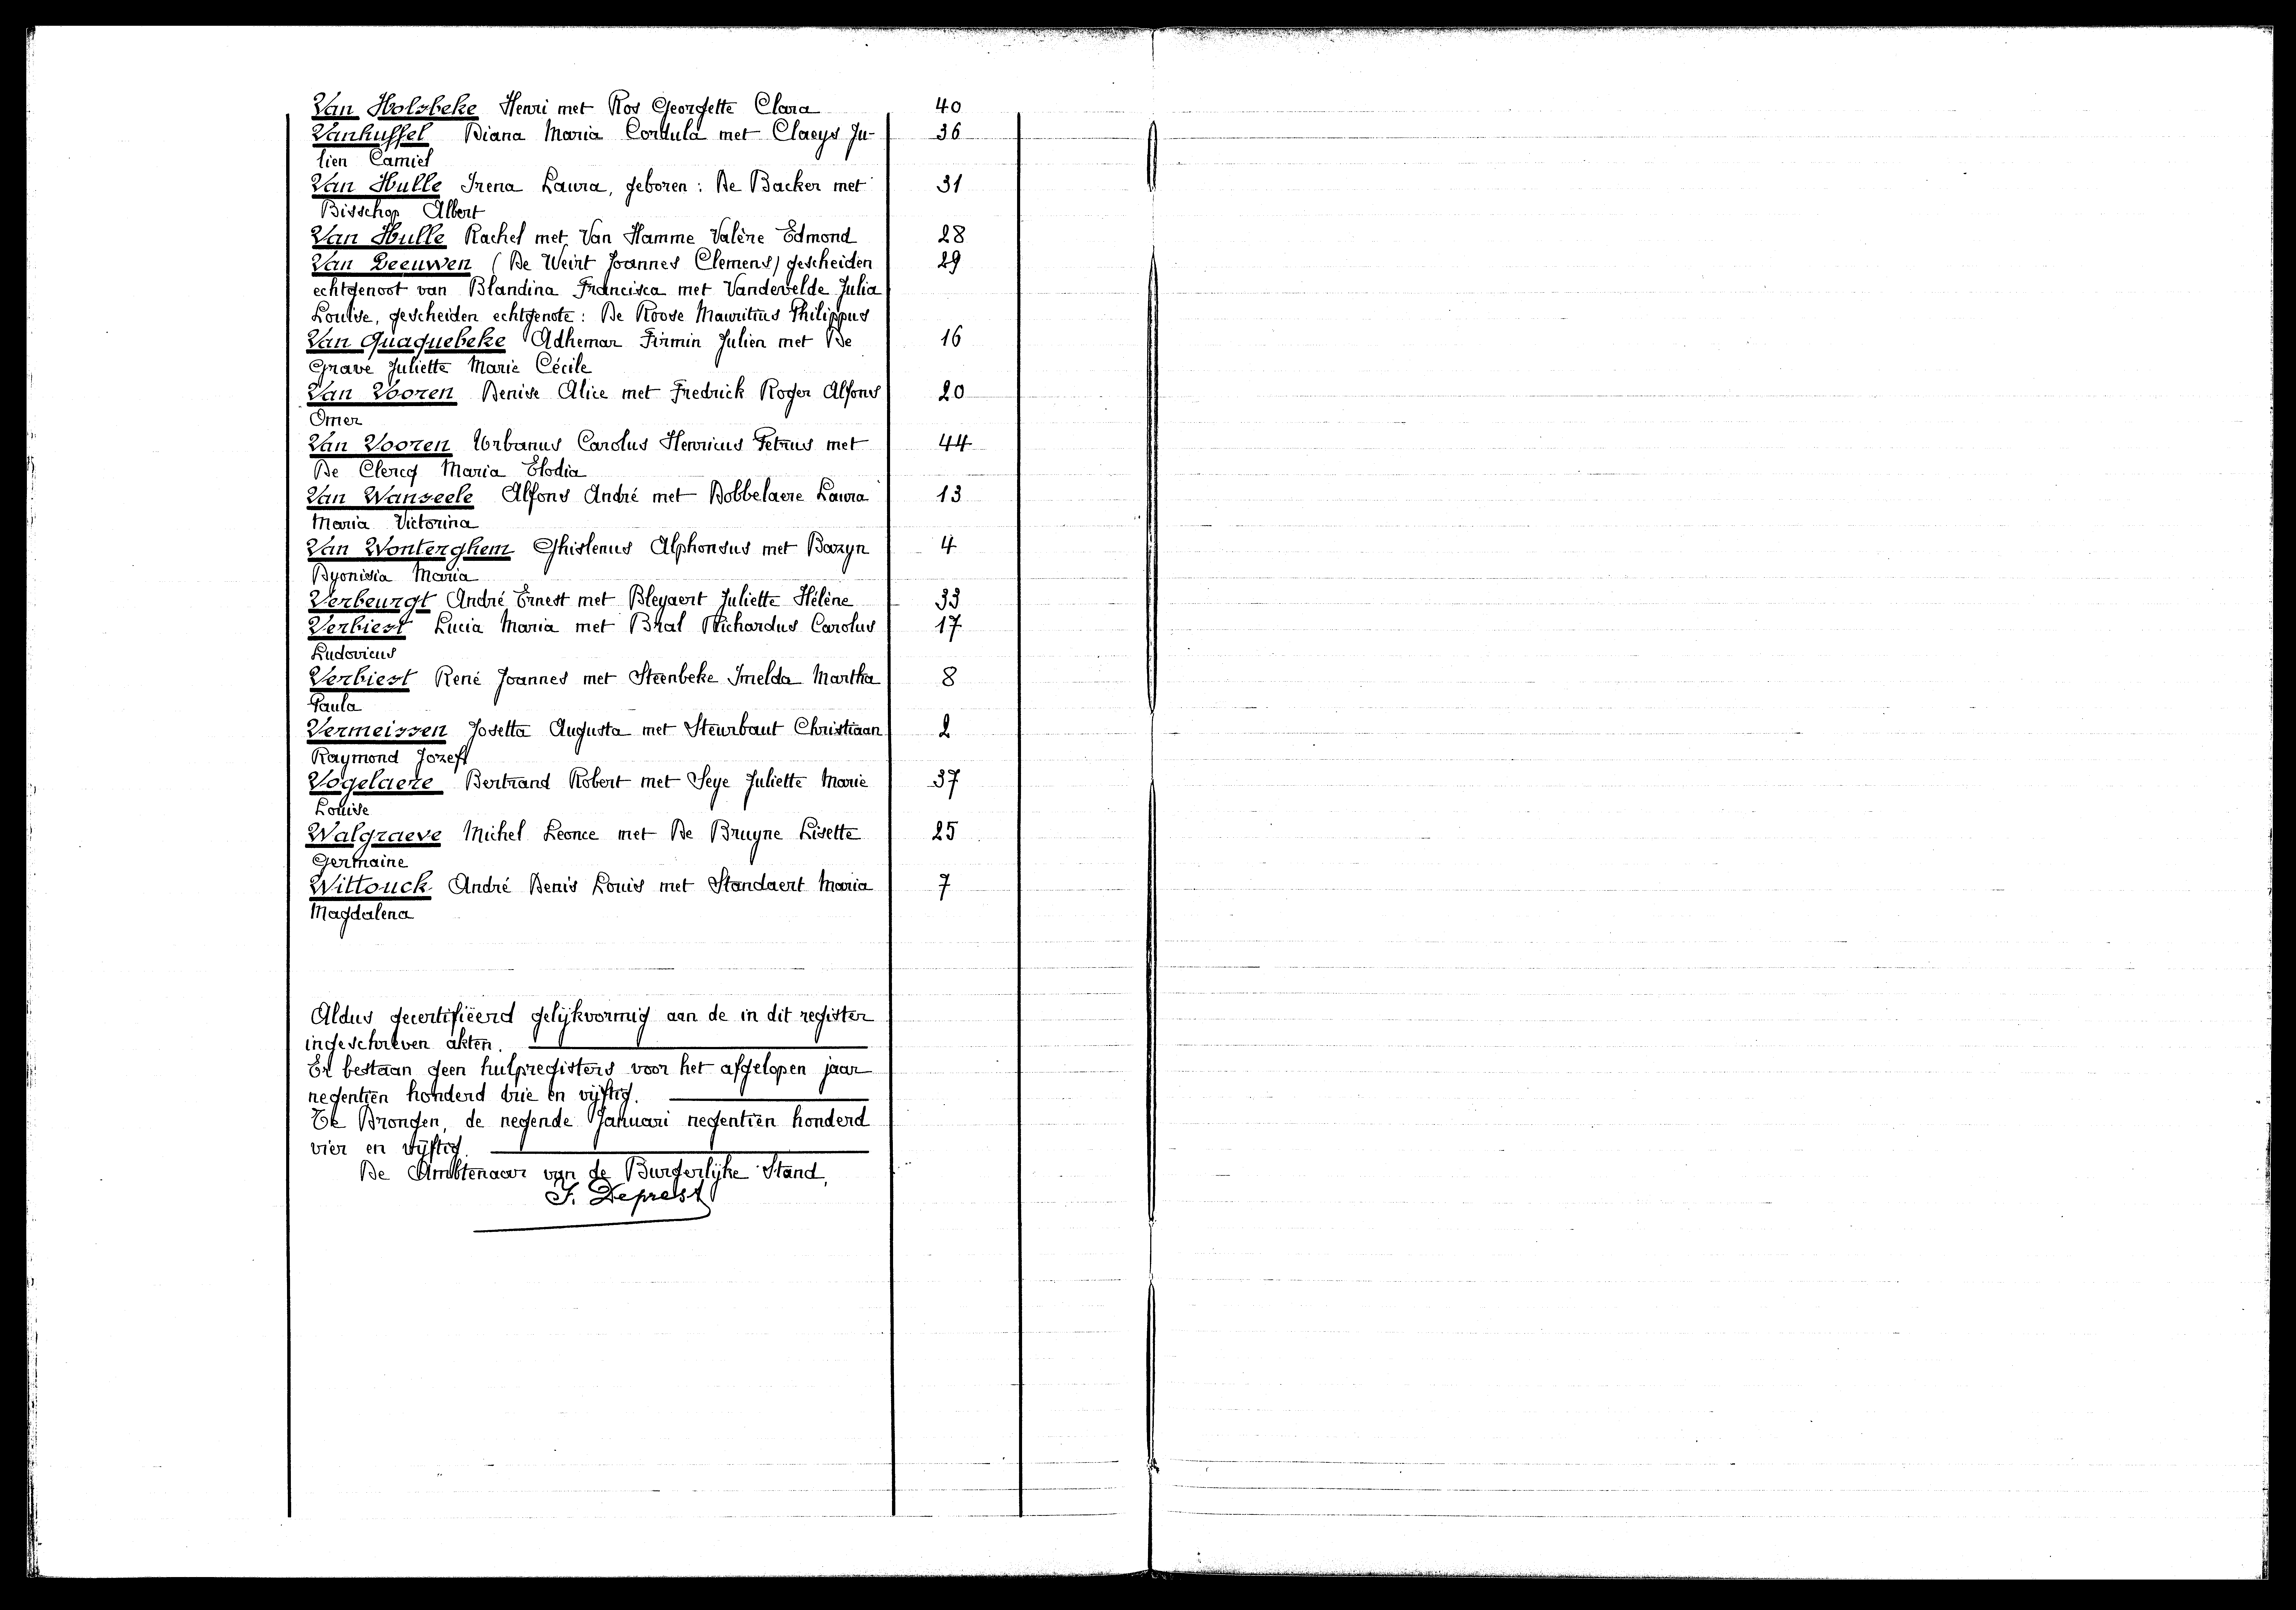 Van Holsbeke Henri met Ros Georgette Clara 40
Vanhuffel Diana Maria Cordula met Claeys Ju- 36
lien Camiel
Van Hulle Irena Laura, geboren: De Backer met 31
Bisschop Albert
Van Hulle Rachel met Van Hamme Valère Edmond 28
Van Leeuwen (De Weirt Joannes Clemens) gescheiden 29
echtgenoot van Blandina Francisca met Vandevelde Julia
Louise, gescheiden echtgenote: De Roose Mauritius Philippus
Van Quaquebeke Adhemar Firmin Julien met De 16
Grave Juliette Marie Cécile
Van Vooren Denise Alice met Fredrick Roger Alfons 20
Omer
Van Vooren Urbanus Carolus Henricus Petrus met 44
De Clercq Maria Elodia
Van Wanseele Alfons André met Dobbelaere Laura 13
Maria Victorina
Van Wonterghem Ghislenus Alphonsus met Bozyn 4
Dyonisia Maria
Verbeurgt André Ernest met Bleyaert Juliette Hélène 33
Verbiest Lucia Maria met Bral Richardus Carolus 17
Ludovicus
Verbiest René Joannes met Steenbeke Imelda Martha 8
Paula
Vermeissen Josetta Augusta met Steurbaut Christiaan 2
Raymond Jozef
Vogelaere Bertrand Robert met Seye Juliette Marie 37
Louise
Walgraeve Michel Leonce met De Bruyne Lisette 25
Germaine
Wittouck André Denis Louis met Standaert Maria 7
Magdalena
Aldus gecertifiëerd gelijkvormig aan de in dit register
ingeschreven akten.
Er bestaan geen hulpregisters voor het afgelopen jaar
negentien honderd drie en vijftig.
Te Drongen, de negende Januari negentien honderd
vier en vijftig.
De Ambtenaar van de Burgerlijke Stand,
J. Deprest